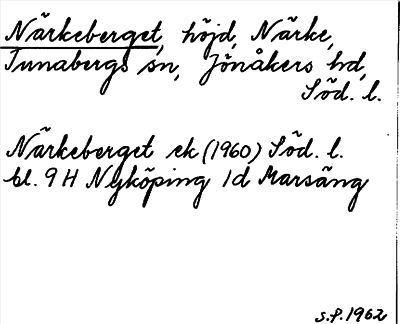 Närkeberget, höjd, Närke,
Tunabergs sn, Jönåkers hd,
Söd. l.
Närkeberget ek (1960) Söd. l.
bl. 9 H Nyköping 1d Marsäng
S.P. 1962